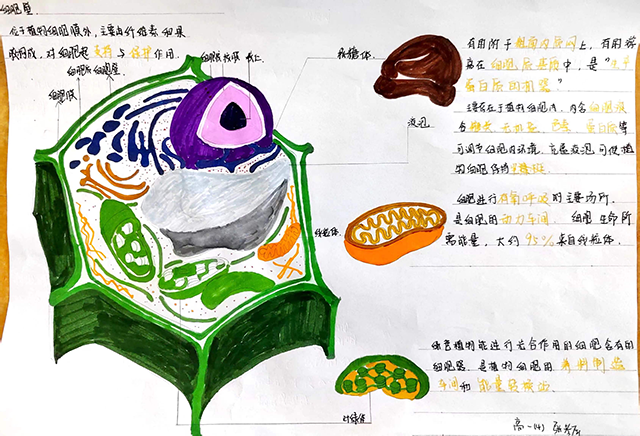 细胞壁
位于植物细胞膜外,主要由纤维素和果
胶构成,对细胞起支持与保护作用。
细胞质 细胞壁
细胞膜
细胞核 核膜 核仁
核糖体
有的附于粗面内质网上,有的游
离在细胞质基质中,是“生产
蛋白质的机器”
液泡
主要存在于植物细胞内,内含细胞液
含糖类、无机盐、色素、蛋白质等
可调节细胞内环境,充盈液泡可使植
物细胞保持坚挺
线粒体
细胞进行有氧呼吸的主要场所
是细胞的动力车间,细胞生命所
需能量,大约95%来自线粒体.
叶绿体
绿色植物能进行光合作用的细胞含有的
细胞器,是植物细胞的养料制造
车间和能量转换站
高一(4)